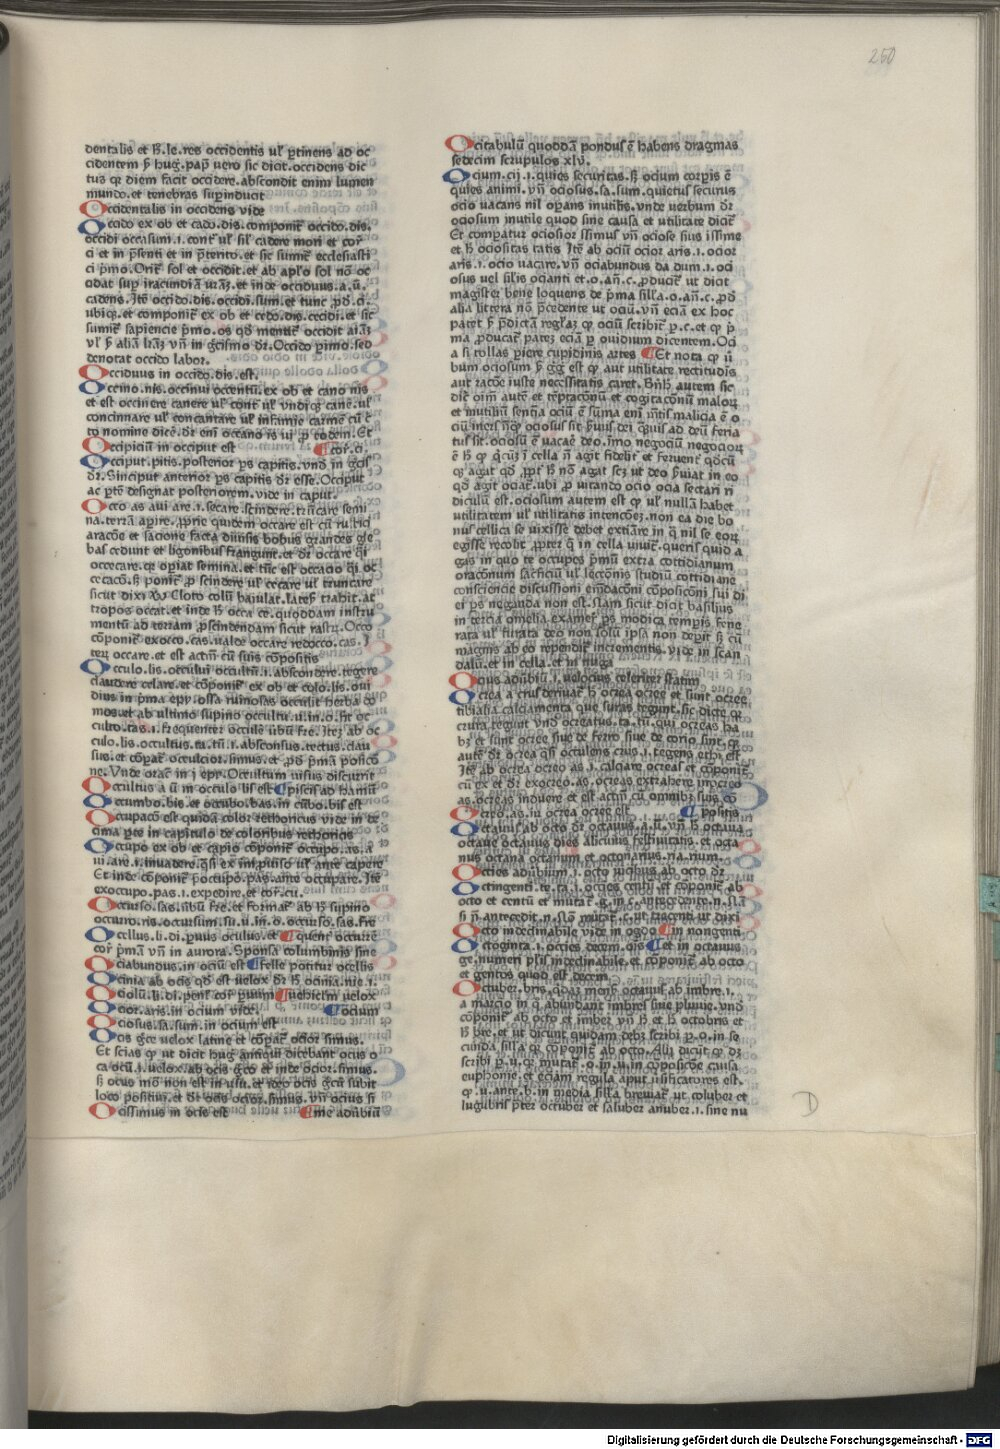 250
dentalis et h̄.le.res occidentis ul' ꝑtinens ad oc
cidentem ẜm hug.pap̄ uero sic dicit.occidens dic
tus qr diem facit occidere.abscondit enim lumen
mundo.et tenebras suꝑinducit
Occidentalis in occidens vide
Occido ex ob et cado.dis.componit᷑ occido.dis.
occidi occasum.i.cont᷑ ul' sil' cadere mori et cor̄
ci et in p̄senti et in p̄terito.et sic sumit᷑ ecclesiasti
ci p̄mo.Orit᷑ sol et occidit.et ab ap̄lo sol nō oc
cidat sup iracundiā urāȝ.et inde occiduus.a.ū.
cadens.Itē occido.dis.occidi.sum.et tunc ꝓd̄.ci.
ubiqȝ.et componit᷑ ex ob et cedo.dis.cecidi.et sic
sumit᷑ sapiencie p̄mo.os qd̄ mentit᷑ occidit aīaȝ
vl' ẜm aliā lrāȝ vn̄ in grecismo dr̄.Occido p̄imo.sed
denotat occido labor.
Occiduus in occido.dis.est.
Occino.nis.occinui occentū.ex ob et cano nis
et est occinere canere ul' cont᷑ ul' vndiqȝ canē.ul'
concinnare ul' concantare ul' infamie carmē cū c̄
to nomine dicē.dr̄ enī occano is uj ꝓ eodem.Et
Occipiciū in occiput est ¶cor̄.ci.
Occiput.pitis.posterior ps capitis.vnd̄ in grecis
dr̄.Sinciput anterior ps capitis dr̄ esse.Occiput
ac ꝑtē designat posteriorem.vide in caput.
Occo as aui are.i.secare.scindere.trūcare semi
na.terrā aꝑire.ꝓprie quidem occare est cū rustici
aracōe et sacione facta diuisis bobus grandes gle
bas cedunt et ligonibus frangunt.et dr̄ occare q̄si
occecare.qr oꝑiat semina.et tūc est occacio q̄si oc
cecacō.h̄ ponit᷑ ꝓ scindere ul' cecare ul' truncare
sicut dixi Cloto colū baiulat.lateh̄ trahit.at
tropos occat.et inde h̄ occa ce.quoddam instru
mentū ad terram ꝓscindendam sicut rastr̄.Occo
cōponit᷑ exocco.cas.ualde occare redocco.cas.I
terū occare.et est actīm cū suis cōpositis
Occulo.lis.occului occultū.i.abscondere.tegere
claudere celare.et cōponit᷑ ex ob et colo.lis.oui
dius in p̄ma epȳ.ossa ruinosas occulit herba do
mos.et ab ultimo supino occultu.u.in.o.fit oc
culto.tas.i.frequenter occulē ubū fre.Itēȝ ab oc
culo.lis.occultus.ta.tū.i.absconsus.tectus.clau
sus.et cōpat᷑ occulcior.simus.et ꝓd̄ p̄mā posicō
ne.Vnde orac̄ in j epȳ.Occultum uisus discurrit
Occultus a ū in occulo lis est ¶piscis ad hamū
Occumbo.bis.et occubo.bas.in cūbo.bis est
Occupacō est quidā color rethoricus vide in de
cima ꝑte in capitulo de coloribus rethoricis
Occupo ex ob et capio cōponit᷑ occupo.as.a
ui.are.i.inuadere.q̄si ex impulso ul' ante capere
Et inde cōponit᷑ ꝓoccupo.pas.ante occupare.Itē
exoccupo.pas.i.expedire.et cor̄.cu.
Occurso.sas.ubū fre.et format᷑ ab h̄ supino
occurro.ris.occursum.su.u.in.o.occurso.sas.fre
Ocellus.li.di.ꝑuus oculus.et ¶quent᷑ occurrē
cor̄ p̄mā vn̄ in aurora.Sponsa columbinis sine
Ociabundus.in ociū est ¶felle potitur ocellis
Ocinia ab ocis qd̄ est uelox dr̄ h̄ ocinia.nie.i.
Ociolū.li.di.penl' cor̄ ꝑuum ¶uehiclm̄ uelox
Ocior.aris.in ocium vide. ¶ocium
Ociosus.sa.sum.in ocium est
Ocis grece uelox latine et cōpat᷑ ocior simus.
Et scias ꝙ ut dicit huḡ antiqui dicebant ocius o
ca ociū.i.uelox.ab ocis grco et inde ocior.simus.
h̄ ocus mō non est in usu.et ideo ocis grcū subit
loco positiui.et dr̄ ocis ocior.simus.vn̄ ocius si
Ocissimus in ocie est ¶me adūbiū
Ocitabulū quoddā pondus ē habens dragmas
sedecim scrupulos xlv.
Ocium.cij.i.quies securitas.h̄ ocium corꝑis ē
quies animi.vn̄ ociosus.sa.sum.quietus securus
ocio uacans nil oꝑans inutilis.vnde uerbum dr̄
ociosum inutile quod sine causa et utilitate dicit᷑
Et compatur ociosior issimus vn̄ ociose sius issime
et h̄ ociositas tatis Itē ab ociū ocior aris.i.ocior
aris.i.ocio uacare.vn̄ ociabundus da dum.i.oci
osus uel silis ocianti et.o.an̄.c.ꝓducit᷑ ut dicit
magister bene loquens de p̄ma silla.o.an̄.c.ꝓd̄
alia littera nō p̄cedente ut ociū.vn̄ eciā ex hoc
patet ꝙ p̄dictā reglāȝ ꝙ ociū scribit᷑ ꝑ.c.et ꝙ p̄
ma ꝓducat᷑ patȝ eciā ꝑ ouidium dicentem.Oci
a si tollas ꝑiere cupidinis artes ¶Et nota ꝙ ū
bum ociosum ẜm gg̃ est ꝙ aut utilitate rectitudīs
aut racōe iuste necessitatis caret.Bn̄h̄ autem sic
dic̄ oīm autē et teptacōnū et cogitacōnū malorȝ
et inutiliū sentīa ociū ē sūma enī mētis malicia ē o
ciū iners nūqȝ ociosus sit ẜuus dei quis ad deū feria
tus sit.ociosū ē uacāe deo.imo negociū negociorȝ
ē h̄ ꝙ quicūqȝ ī cella n̄ agit fidelit᷑ et feruent᷑ qd̄cū
qȝ agat qd̄ ꝓpt᷑ h̄ nō agat scȝ ut deo ẜuiat in eo
qd̄ agit ociat᷑.ubi ꝓ uitando ocio ocia sectari ri
diculū est.ociosum autem est ꝙ ul' nullā habet
utilitatem ul' utilitatis intencōeȝ.non ea die bo
nus cellica se uixisse debet extiāre in q̄ nil se eorȝ
egisse recolit ꝓpter q̄ in cella uiuit᷑.queris quid a
gas in quo te occupes p̄mū extra cottidianum
oraconum sacrificiū ul' lectōnis studiū cottidiane
consciencie discussioni emēdacōni cōposicōni sui di
ei ps neganda non est.Nam sicut dicit basilius
in tercia omelia examer ps modica temꝑis fene
rata ul' furata deo non solū ipsa non deꝑit h̄ cū
magnis ab eo rependit᷑ incrementis.vide in scan
dalū.et in cella.et in nuga
Ocius adūbiū.i.uelocius celeriter statim
Ocrea a crus deriuat᷑ h̄ ocrea ocree et sunt ocree
tibialia calciamenta que suras tegunt.sic dicte qr
crura tegunt vnd̄ ocreatus.ta.tū.qui ocreas ha
bȝ et sunt ocree siue de ferro siue de corio sint.qr
autē dr̄ ocrea q̄si occulens crus.i.tegens ethi est
Itē ab ocrea ocreo as.i.calciare ocreas et cōponit᷑
cū ex et dr̄ exocreo.as.ocreas extrahere inocreo
as.ocreas induere et est actīm cū omnibȝ suis cō
Ocreo.as.in ocrea ocree est ¶positis
Octauus ab octo dr̄ octauus.a.ū.vn̄ h̄ octaua
octaue octauus dies alicuius festiuitatis.et octa
nus octana octanum et octonarius.ria.rium.
Octies adūbium.i.octo uicibus ab octo dr̄
Octingenti.te.ta.i.octies centū et cōponit᷑ ab
octo et centū et mutat᷑.c.in.c.antecedente.n.slā
si n̄ antecedit.n.slā mutat᷑.c.ut trecenti ut dixi
Octo indeclinabile vide in ogdo ¶in nongenti
Octoginta.i.octies decem.ois ¶et in octauus
ge.numeri plis̄ indeclinabile.et cōponit᷑ ab octo
et gentos quod est decem.
Octuber.bris.qdāȝ mens̄ octauus ab imbre.i.
a marcio in q̄ abundant imbres siue pluuie.vnd̄
cōponit᷑ ab octo et imber vn̄ h̄ et h̄ octobris et
h̄ bre.et ut dicunt quidam debȝ scribi ꝑ.o.in se
cunda silla qr cōponit᷑ ab octo.Alij dicūt ꝙ dȝ
scribi ꝑ.u.qr mutat᷑.o.in.u.in cōposicōe causa
euphonie.et eciam regula aput uersificatores est.
ꝙ.u.ante.b.in media silla breuiat᷑ ut coluber et
lugubris pter octuber et saluber anuber.i.sine nu
D
Digitalisierung gefördert durch die Deutsche Forschungsgemeinschaft - DFG